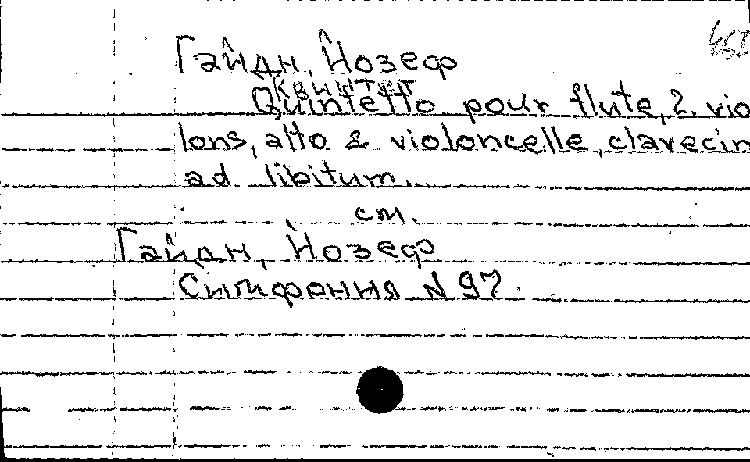 Гайдн, Йозеф
Квинтет
Quintetto pour flute, 2. vio
lons, alto & violoncelle, clavecin
ad libitum.
см.
Гайдн, Йозеф
Симфония N 97.